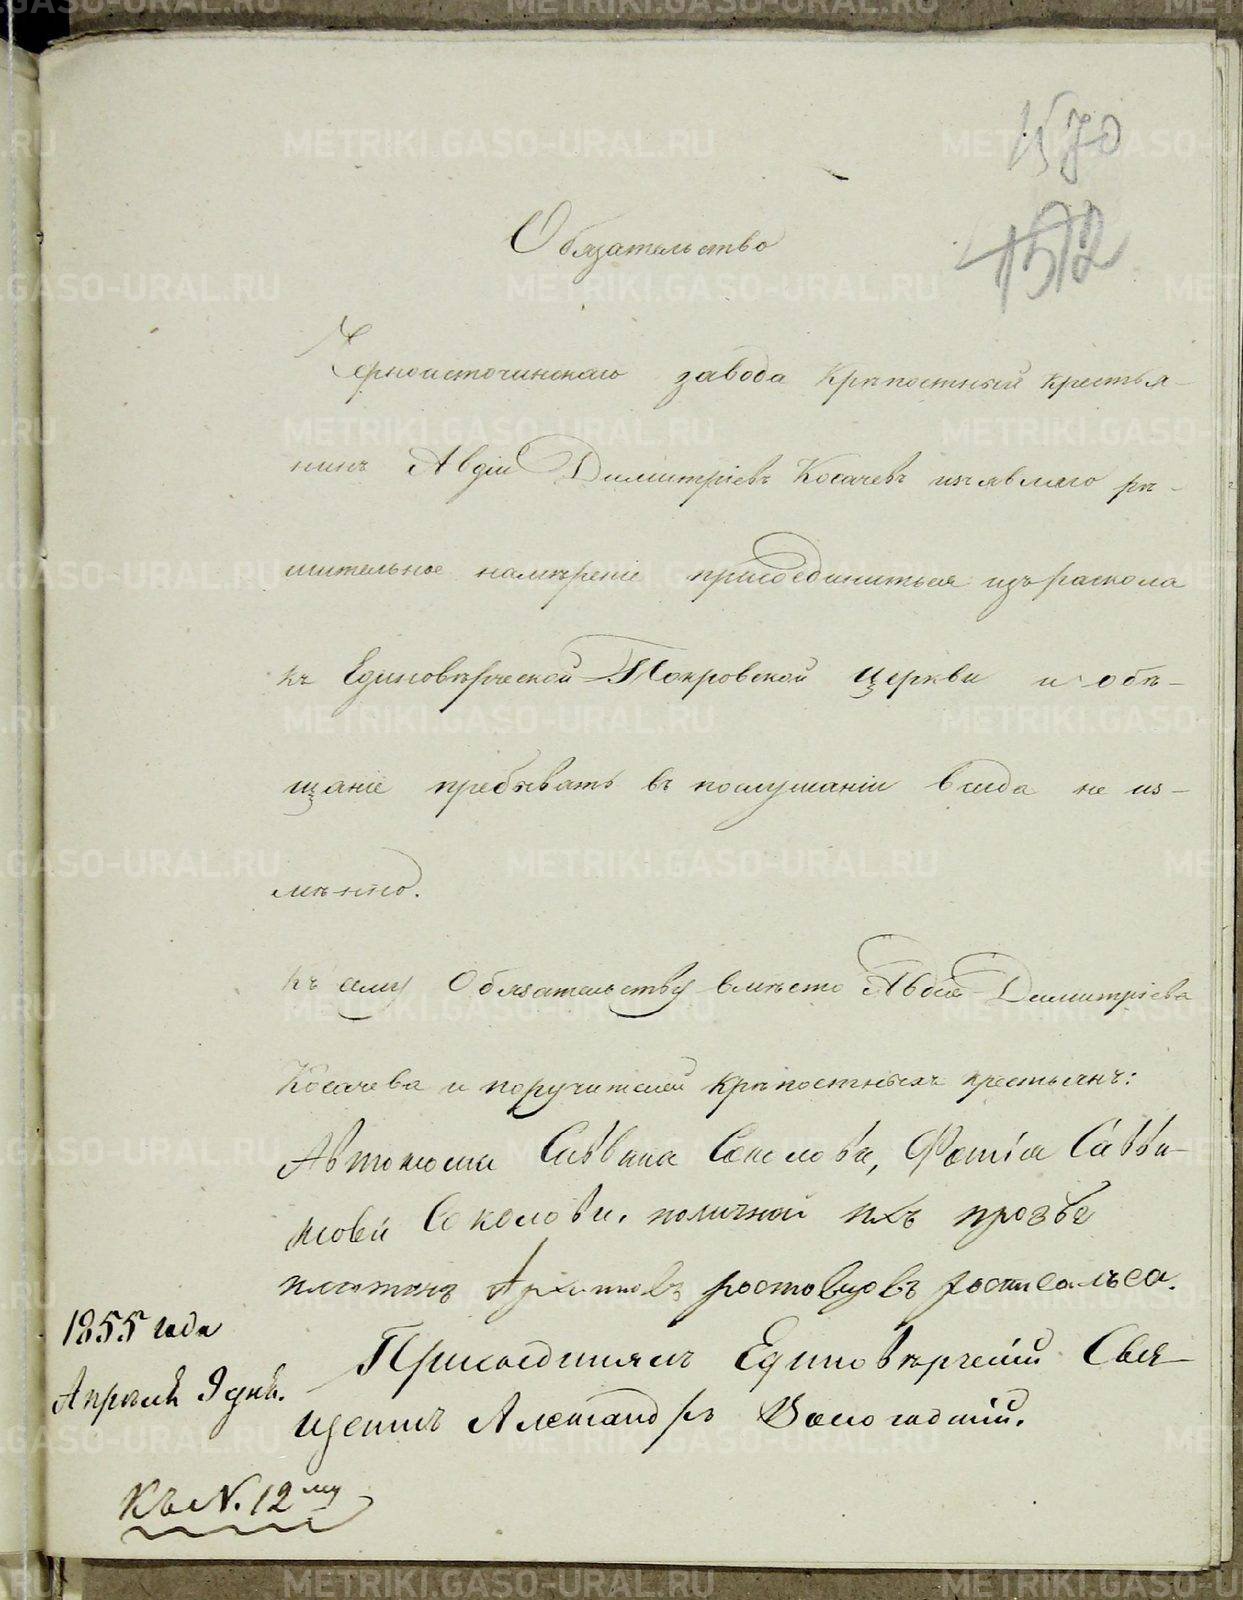 1570
1572
Обязательство
Черноисточинскаго завода крѣпостный крестья-
нинъ Авдій Димитріевъ Косачевъ изъявляю рѣ-
шительное намѣреніе присоединиться изъ раскола
къ Единовѣрческой Покровской церкви и обѣ-
щаніе пребывать въ послушаніи всегда не из-
мѣнно.
Къ сему Обязательству вмѣсто Авдія Димитріева
Косачева и поручителей крѣпостныхъ крестьянъ:
Автонома Саввина Соколова, Фотія Савви-
новы Соколовы, по личной ихъ прозбе
Архиповъ ростовцовъ росписалса.
Присоединялъ Единовѣрческій Свя-
щенникъ Александръ Вологодскій.
1855 года
Апрѣля 9 дня.
Къ N. 12му